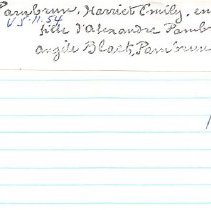 Pambrun, Harriet Emily, en
V.S. 11. 54
fille d'Alexandre Pambr
angèle Black, Pambrun